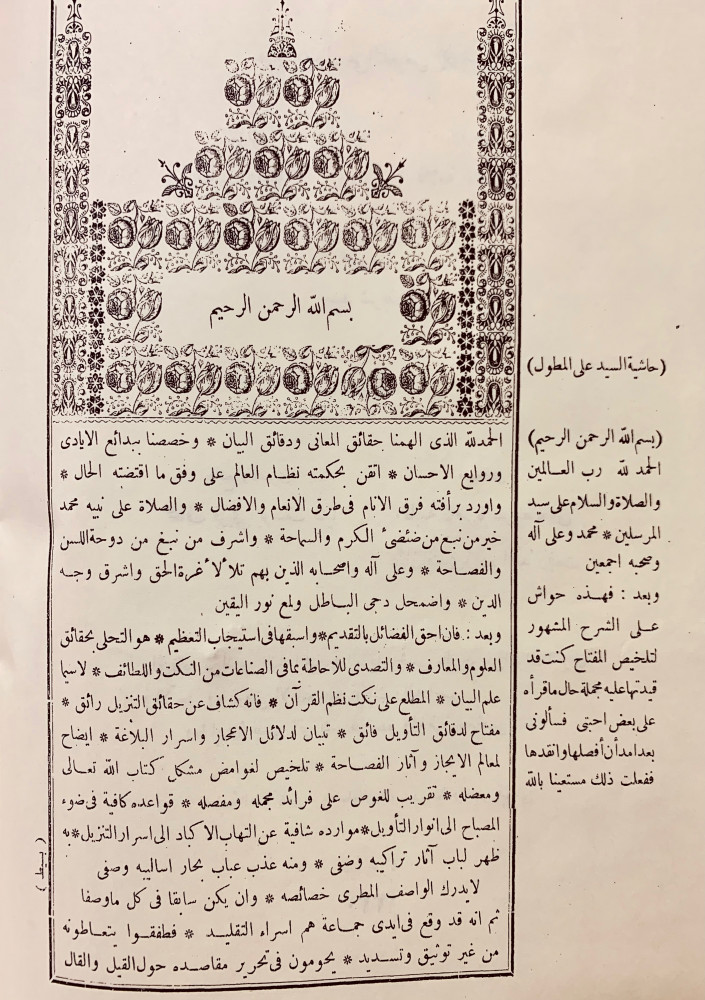 بسم الله الرحمن الرحيم
الحمد لله الذى الهمنا حقائق المعانى ودقائق البيان * وخصصنا ببدائع الايادى
وروايع الاحسان * اتقن بحكمته نظام العالم على وفق ما اقتضته الحال *
واورد برأفته فرق الانام فى طرق الانعام والافضال * والصلاة على نبيه محمد
خير من نبع من ضئضئ الكرم والسماحة * واشرف من نبغ من دوحة اللسن
والفصاحة * وعلى آله واصحابه الذين بهم تلألأ غرة الحق واشرق وجه
الدين * واضمحل دجى الباطل ولمع نور اليقين
وبعد : فان احق الفضائل بالتقديم * واسبقها فى استيجاب التعظيم * هو التحلى بحقائق
العلوم والمعارف * والتصدى للاحاطة بما فى الصناعات من النكت واللطائف * لاسيما
علم البيان * المطلع على نكت نظم القرآن * فانه كشاف عن حقائق التنزيل رائق *
مفتاح لدقائق التأويل فائق * تبيان لدلائل الاعجاز واسرار البلاغة * ايضاح
لمعالم الايجاز وآثار الفصاحة * تلخيص لغوامض مشكل كتاب الله تعالى
ومعضله * تقريب للغوص على فرائد مجمله ومفصله * قواعده كافية فى ضوء
المصباح الى انوار التأويل * موارده شافية عن التهاب الاكباد الى اسرار التنزيل * به
ظهر لباب آثار تراكيبه وضفى * ومنه عذب عباب بحار اساليبه وصفى
لايدرك الواصف المطرى خصائصه * وان يكن سابقا فى كل ماوصفا
ثم انه قد وقع فى ايدى جماعة هم اسراء التقليد * فطفقوا يتعاطونه
من غير توثيق وتسديد * يحومون فى تحرير مقاصده حول القيل والقال
(حاشية السيد على المطول)
(بسم الله الرحمن الرحيم)
الحمد لله رب العالمين
والصلاة والسلام على سيد
المرسلين * محمد وعلى آله
وصحبه اجمعين
وبعد : فهذه حواش
على الشرح المشهور
لتلخيص المفتاح كنت قد
قيدتها عليه مجملة حال ماقرأه
على بعض احبتى فسألونى
بعد امد أن أفصلها وانقدها
ففعلت ذلك مستعينا بالله